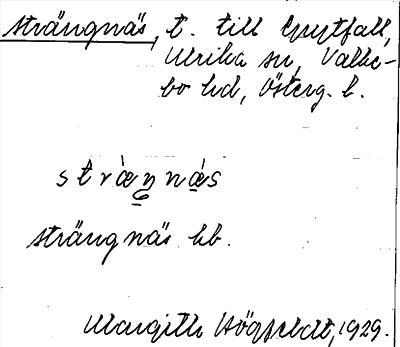 Strängnäs, t. till Grytfall,
Ulrika sn, Valke-
bo hd, Österg. l.
strängnäs hb.
Margith Högfeldt, 1929.